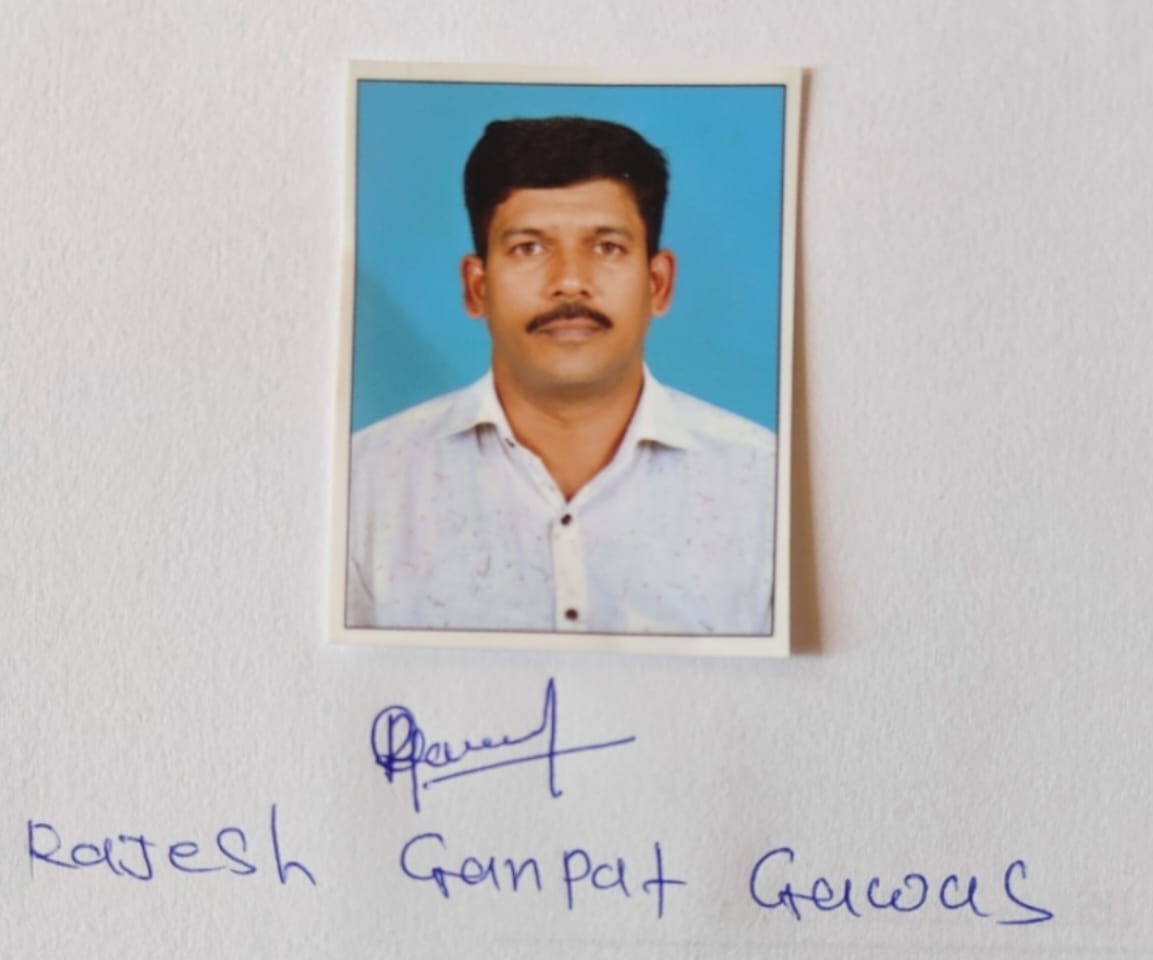 Rajesh Ganpat Gawas